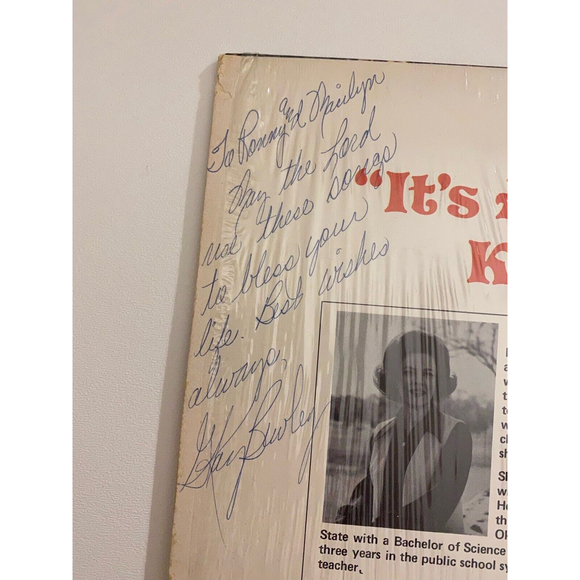 To Ronny and Marilyn
May the Lord
use these songs
to bless your
life. Best wishes
always,
Kay
"It's
K
State with a Bachelor of Science
three years in the public school sy
teacher.